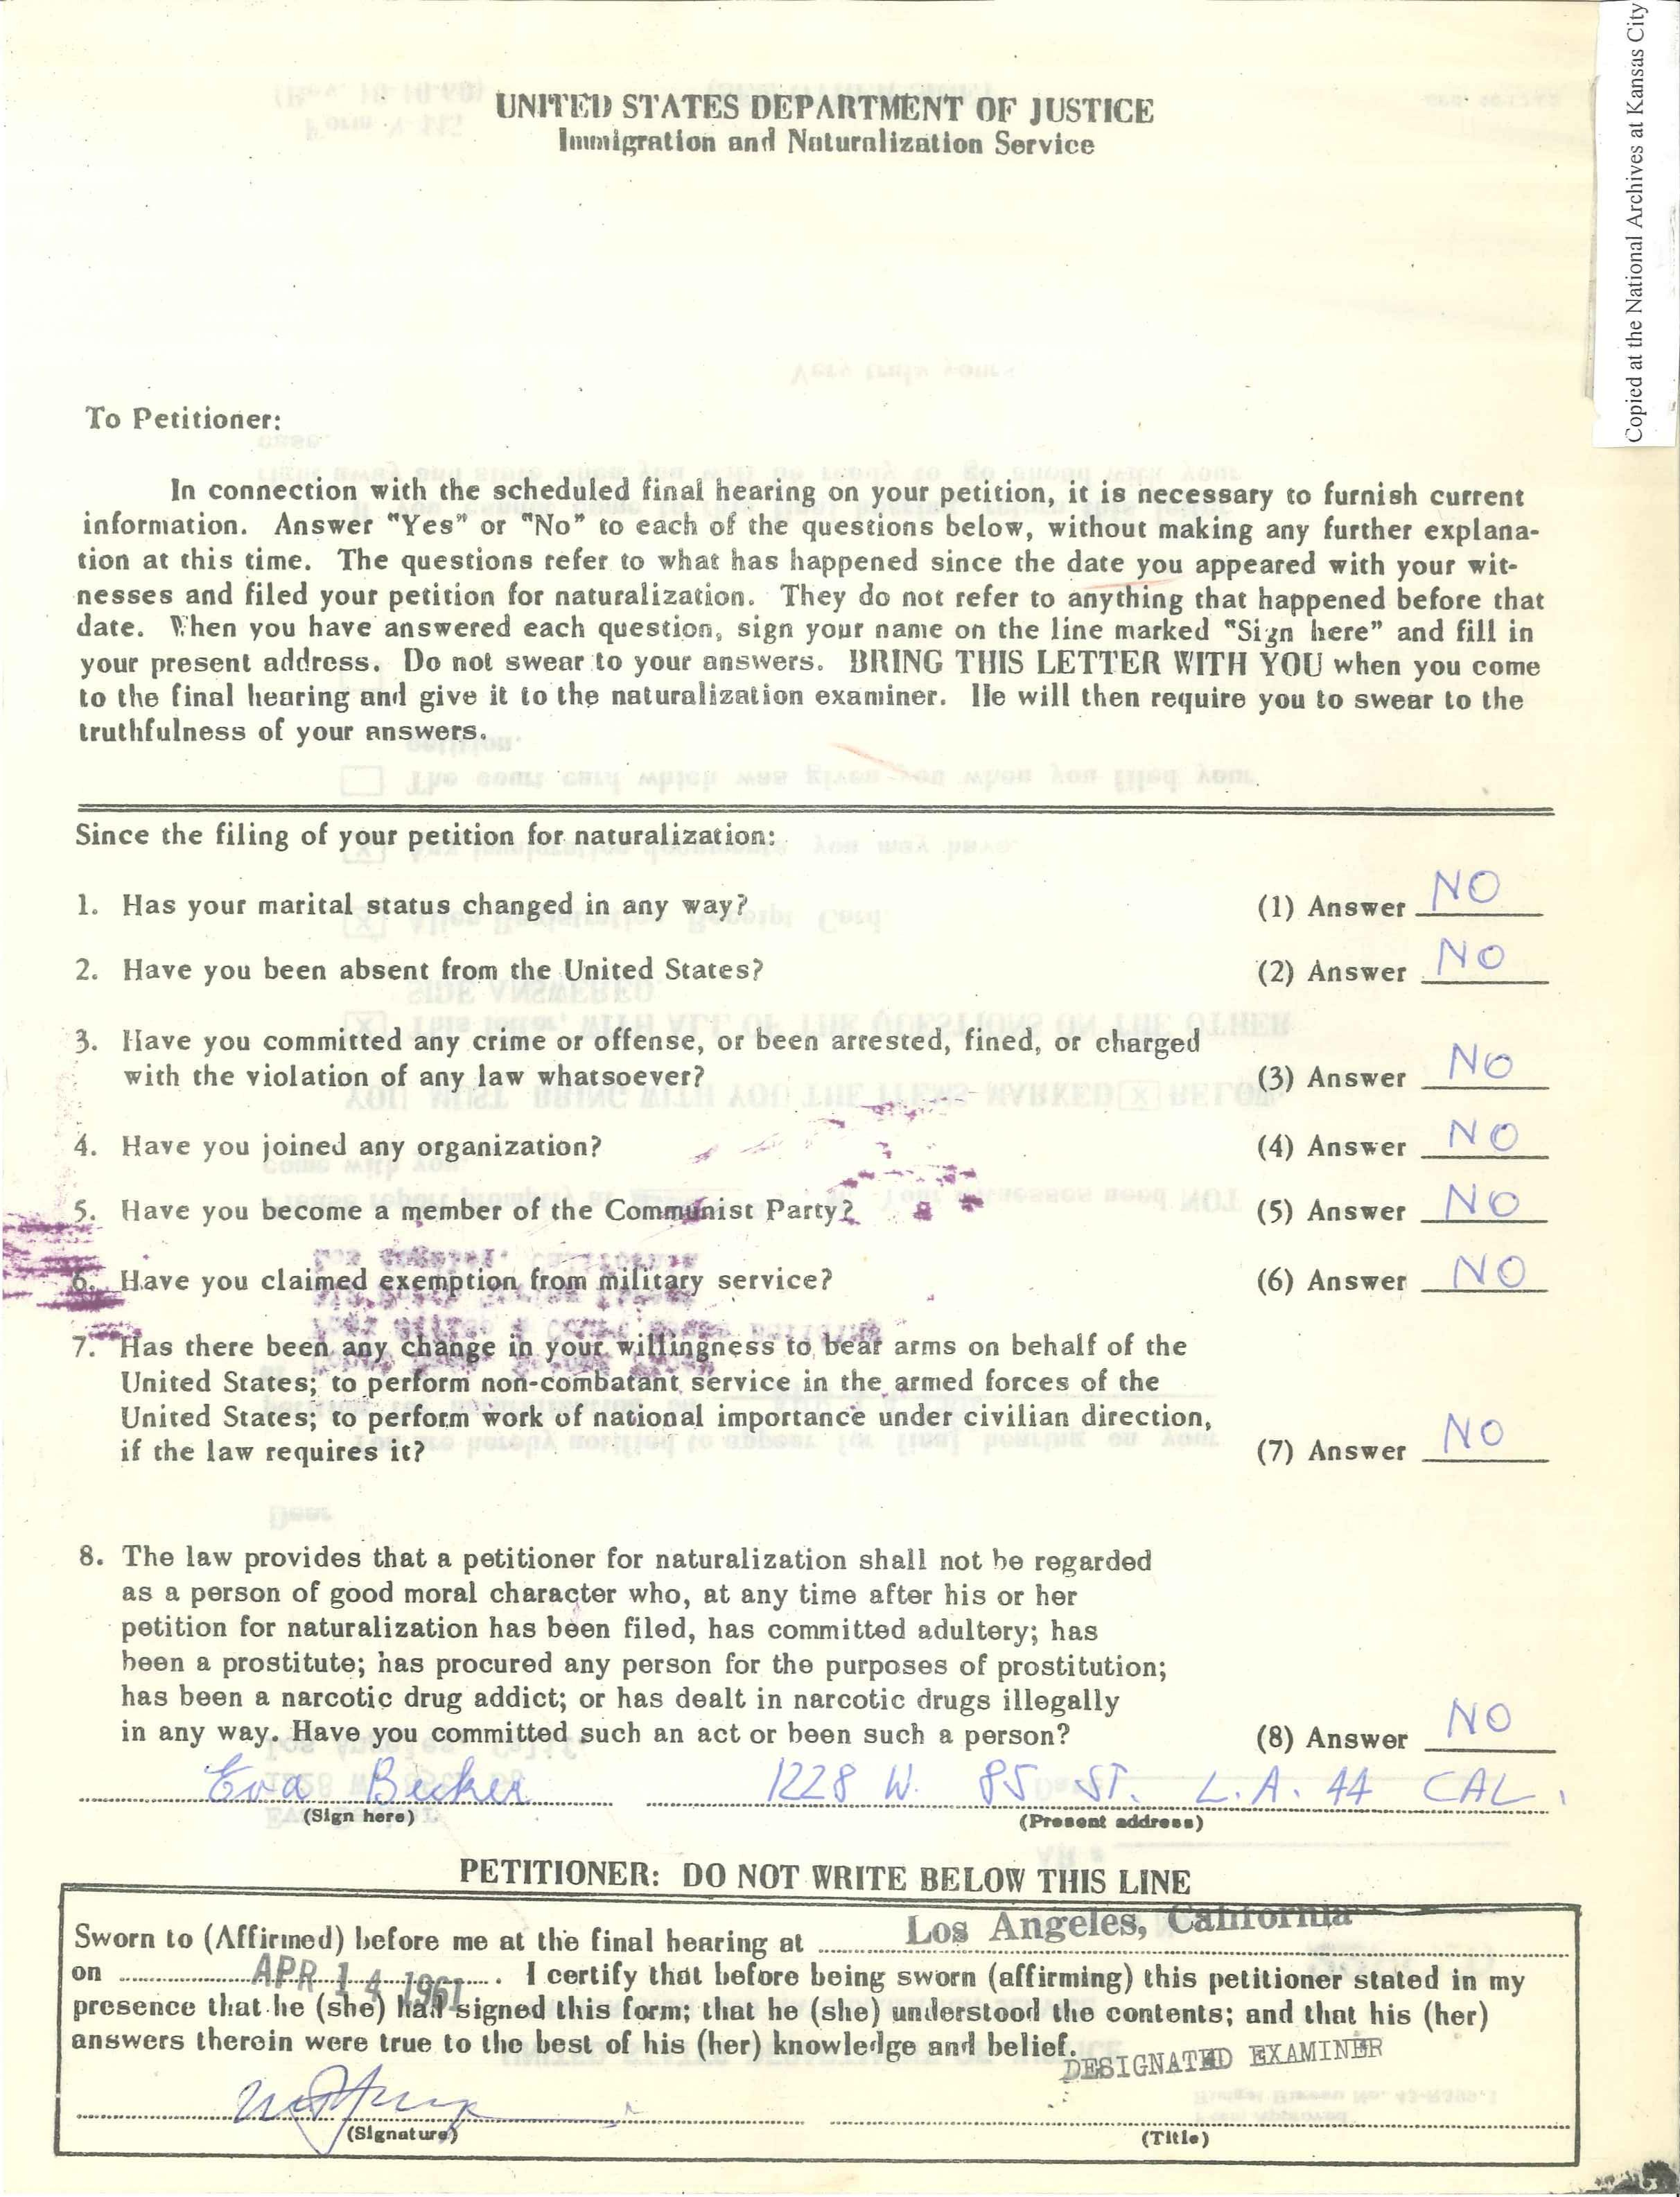 Copied at the National Archives at Kansas City
UNITED STATES DEPARTMENT OF JUSTICE
Immigration and Naturalization Service
To Petitioner:
In connection with the scheduled final hearing on your petition, it is necessary to furnish current
information. Answer "Yes" or "No" to each of the questions below, without making any further explana-
tion at this time. The questions refer to what has happened since the date you appeared with your wit-
nesses and filed your petition for naturalization. They do not refer to anything that happened before that
date. When you have answered each question, sign your name on the line marked "Sign here" and fill in
your present address. Do not swear to your answers. BRING THIS LETTER WITH YOU when you come
to the final hearing and give it to the naturalization examiner. He will then require you to swear to the
truthfulness of your answers.
Since the filing of your petition for naturalization:
1. Has your marital status changed in any way? (1) Answer NO
2. Have you been absent from the United States? (2) Answer NO
3. Have you committed any crime or offense, or been arrested, fined, or charged
with the violation of any law whatsoever? (3) Answer NO
4. Have you joined any organization? (4) Answer NO
5. Have you become a member of the Communist Party? (5) Answer NO
6. Have you claimed exemption from military service? (6) Answer NO
7. Has there been any change in your willingness to bear arms on behalf of the
United States; to perform non-combatant service in the armed forces of the
United States; to perform work of national importance under civilian direction,
if the law requires it? (7) Answer NO
8. The law provides that a petitioner for naturalization shall not be regarded
as a person of good moral character who, at any time after his or her
petition for naturalization has been filed, has committed adultery; has
been a prostitute; has procured any person for the purposes of prostitution;
has been a narcotic drug addict; or has dealt in narcotic drugs illegally
in any way. Have you committed such an act or been such a person? (8) Answer NO
Eva Becker 1228 W. 85 ST. L.A. 44 CAL.
(Sign here) (Present address)
PETITIONER: DO NOT WRITE BELOW THIS LINE
Sworn to (Affirmed) before me at the final hearing at Los Angeles, California
on APR 14 1961. I certify that before being sworn (affirming) this petitioner stated in my
presence that he (she) had signed this form; that he (she) understood the contents; and that his (her)
answers therein were true to the best of his (her) knowledge and belief.
DESIGNATED EXAMINER
(Signature) (Title)